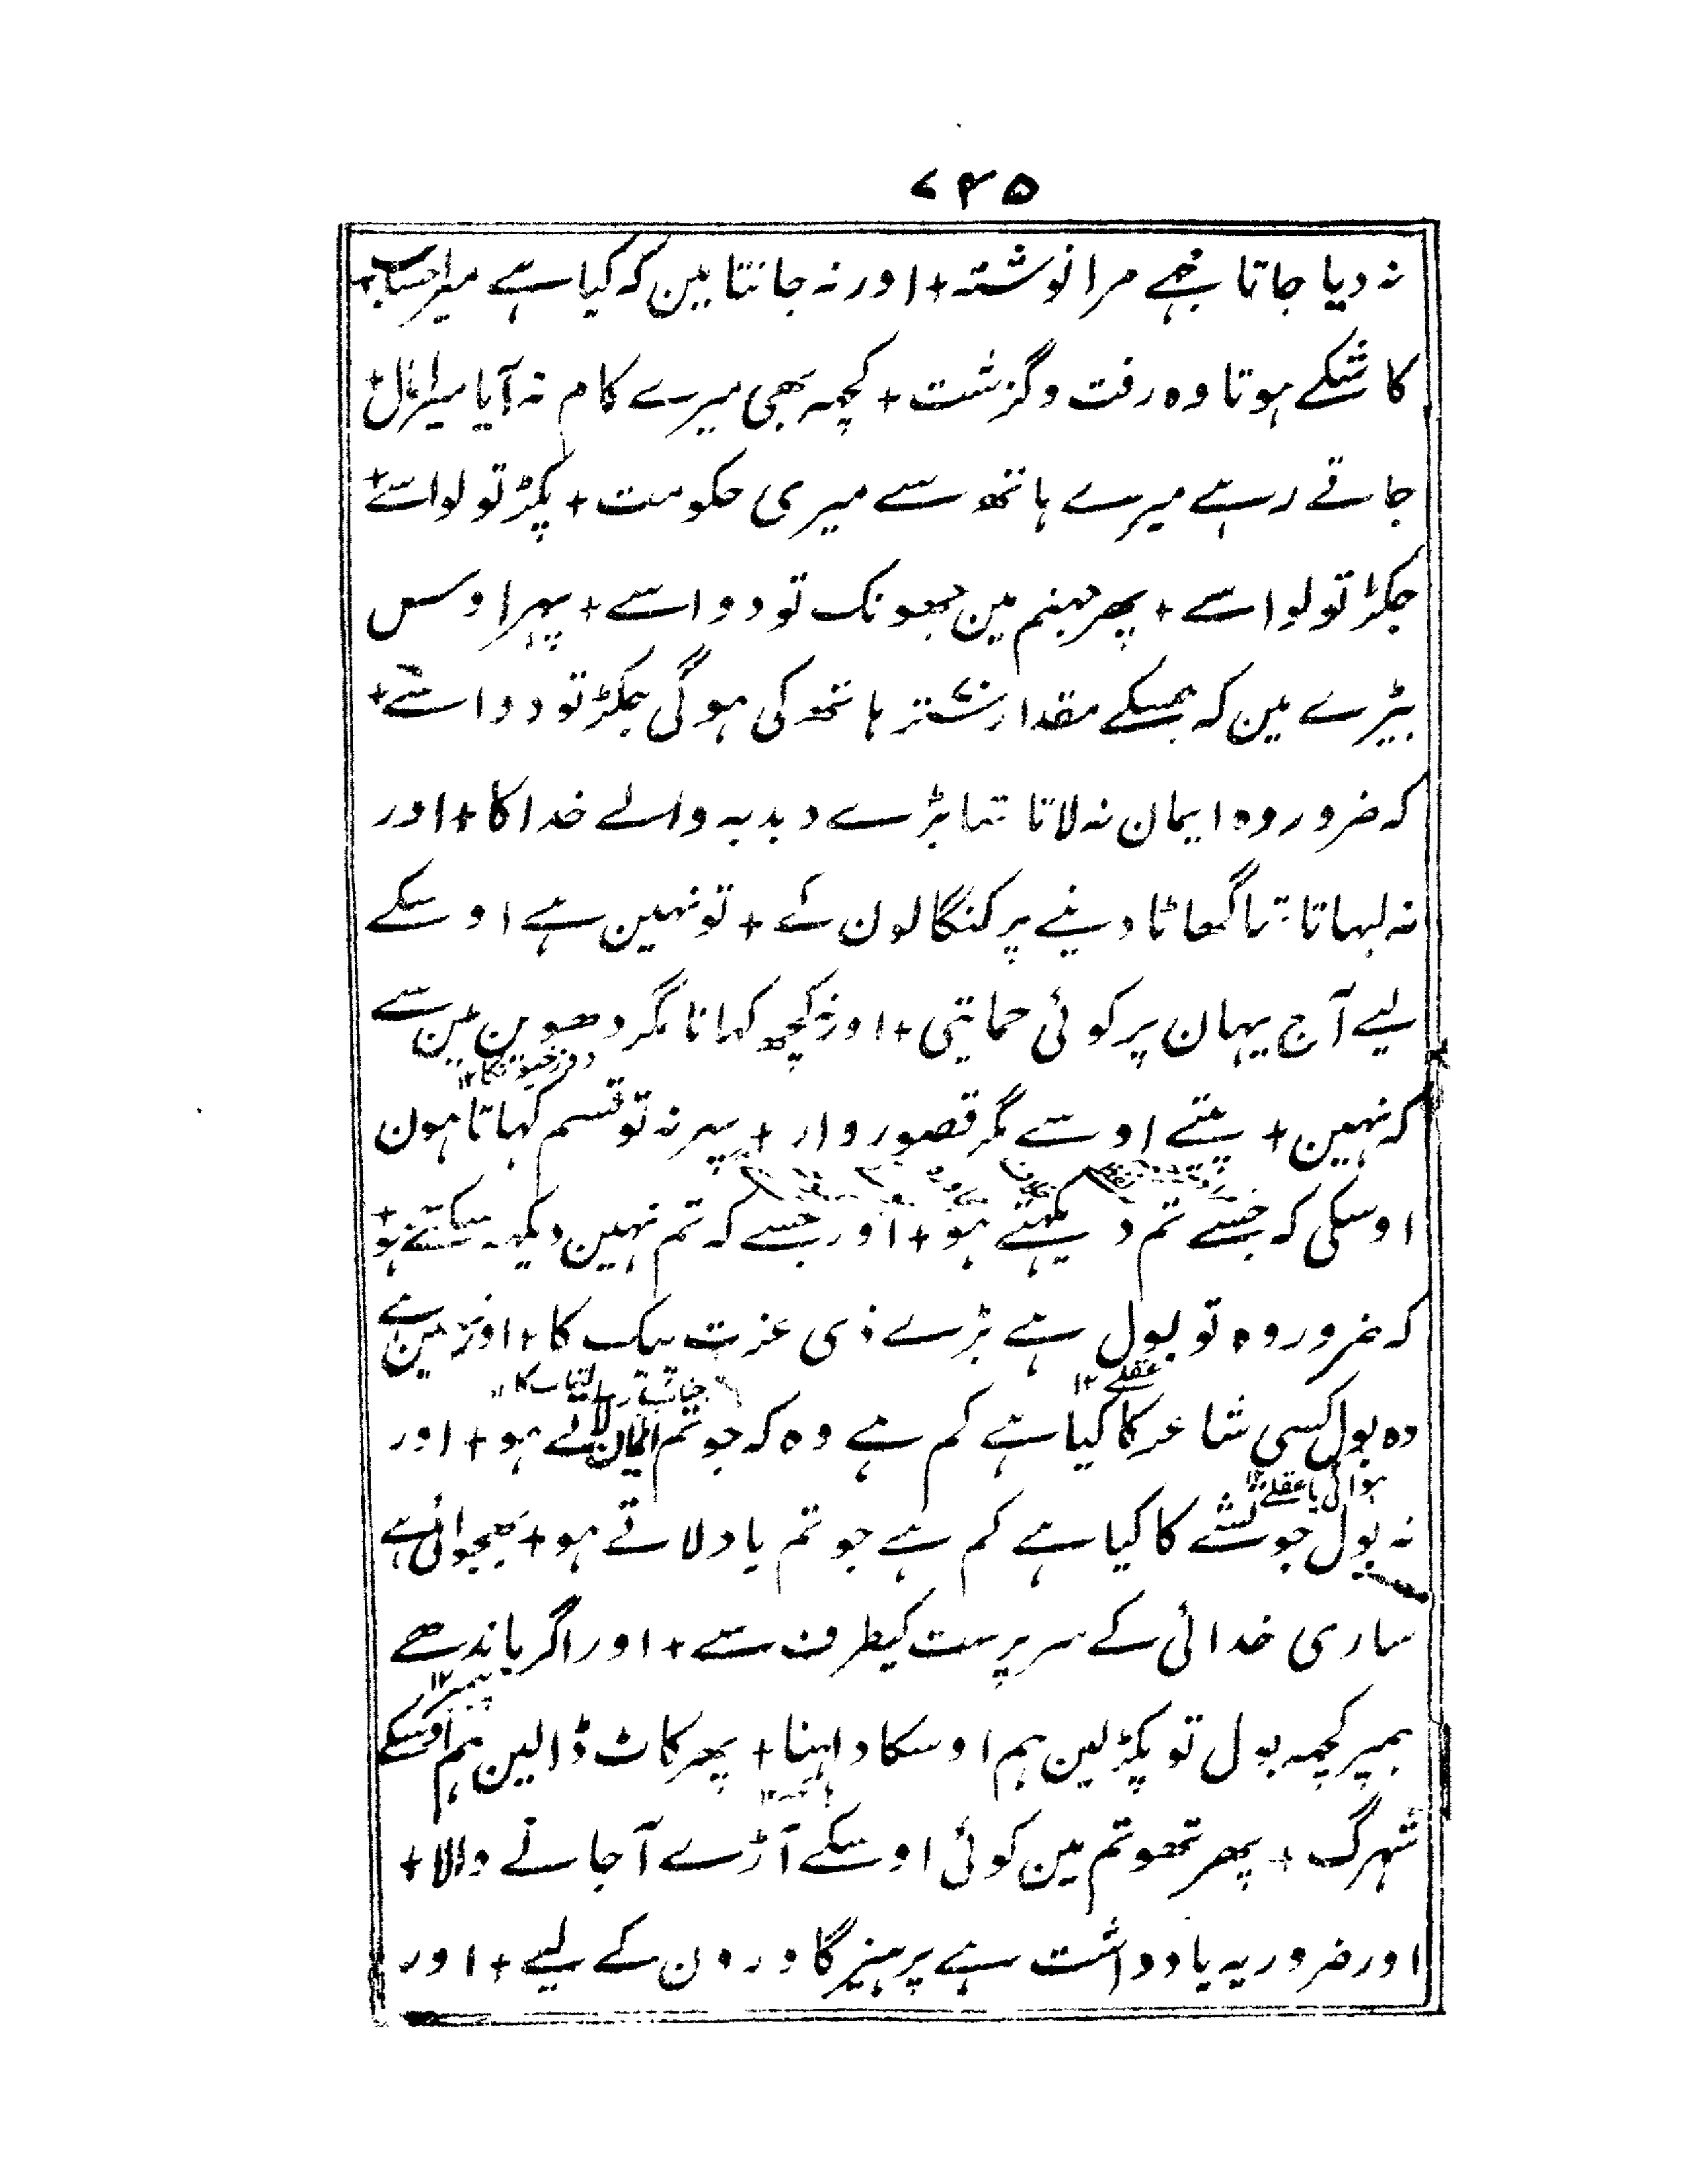 ۷۴۵
نہ دیا جاتا مجھے مرا نوشتہ + اور نہ جانتا مین کہ کیا ہے میرا حساب +
کاشکے ہوتا وہ رفت و گزشت + کچہ بھی میرے کام نہ آیا میرا مال +
جاتے رہے میرے ہاتھ سے میری حکومت + پکڑ تو لو اسے +
جکڑ تو لو اسے + پھر جہنم مین جھونک تو دو اسے + پہر اوس
بیڑے مین کہ جسکے مقدار ستر ہاتھ کی ہوگی جکڑ تو دو اسے +
کہ ضرور وہ ایمان نہ لاتا تہا بڑے دبدبہ والے خدا کا + اور
نہ لبہاتا تہا گھاٹا دینے پر کنگالون کے + تو نہین ہے اوسکے
لیے آج یہان پر کوئی حمایتی + اور نہ کچھ کہانا مگر دھوین مین سے
کہ نہین + پیتے اوسے مگر قصوروار + پہر نہ تو قسم کہاتا ہون
اوسکی کہ جسے تم دیکہتے ہو + اور جسے کہ تم نہین دیکہ سکتے ہو +
کہ ضرور وہ تو بول ہے بڑے ذی عزت پیک کا + اور نہین ہے
عقلے ۱۲
وہ بول کسی شاعر کا کیا ہے کم ہے وہ کہ جو تم ایمان لاتے ہو + اور
ہوائی یا عقلے ۱۲
نہ بول جوتشے کا کیا ہے کم ہے جو تم یاد لاتے ہو + بھجوائی ہے
ساری خدائی کے سرپرست کیطرف سے + اور اگر باندھے
پیمبر ۱۲
ہمپر کچہ بول تو پکڑ لین ہم اوسکا داہنا + پھر کاٹ ڈالین ہم اوسکے
شہرگ + پھر تھو تم مین کوئی اوسکے آڑے آجانے والا +
اور ضرور یہ یادداشت ہے پرہیزگاورون کے لیے + اور